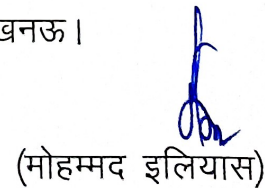 खनऊ।
(मोहम्मद इलियास)